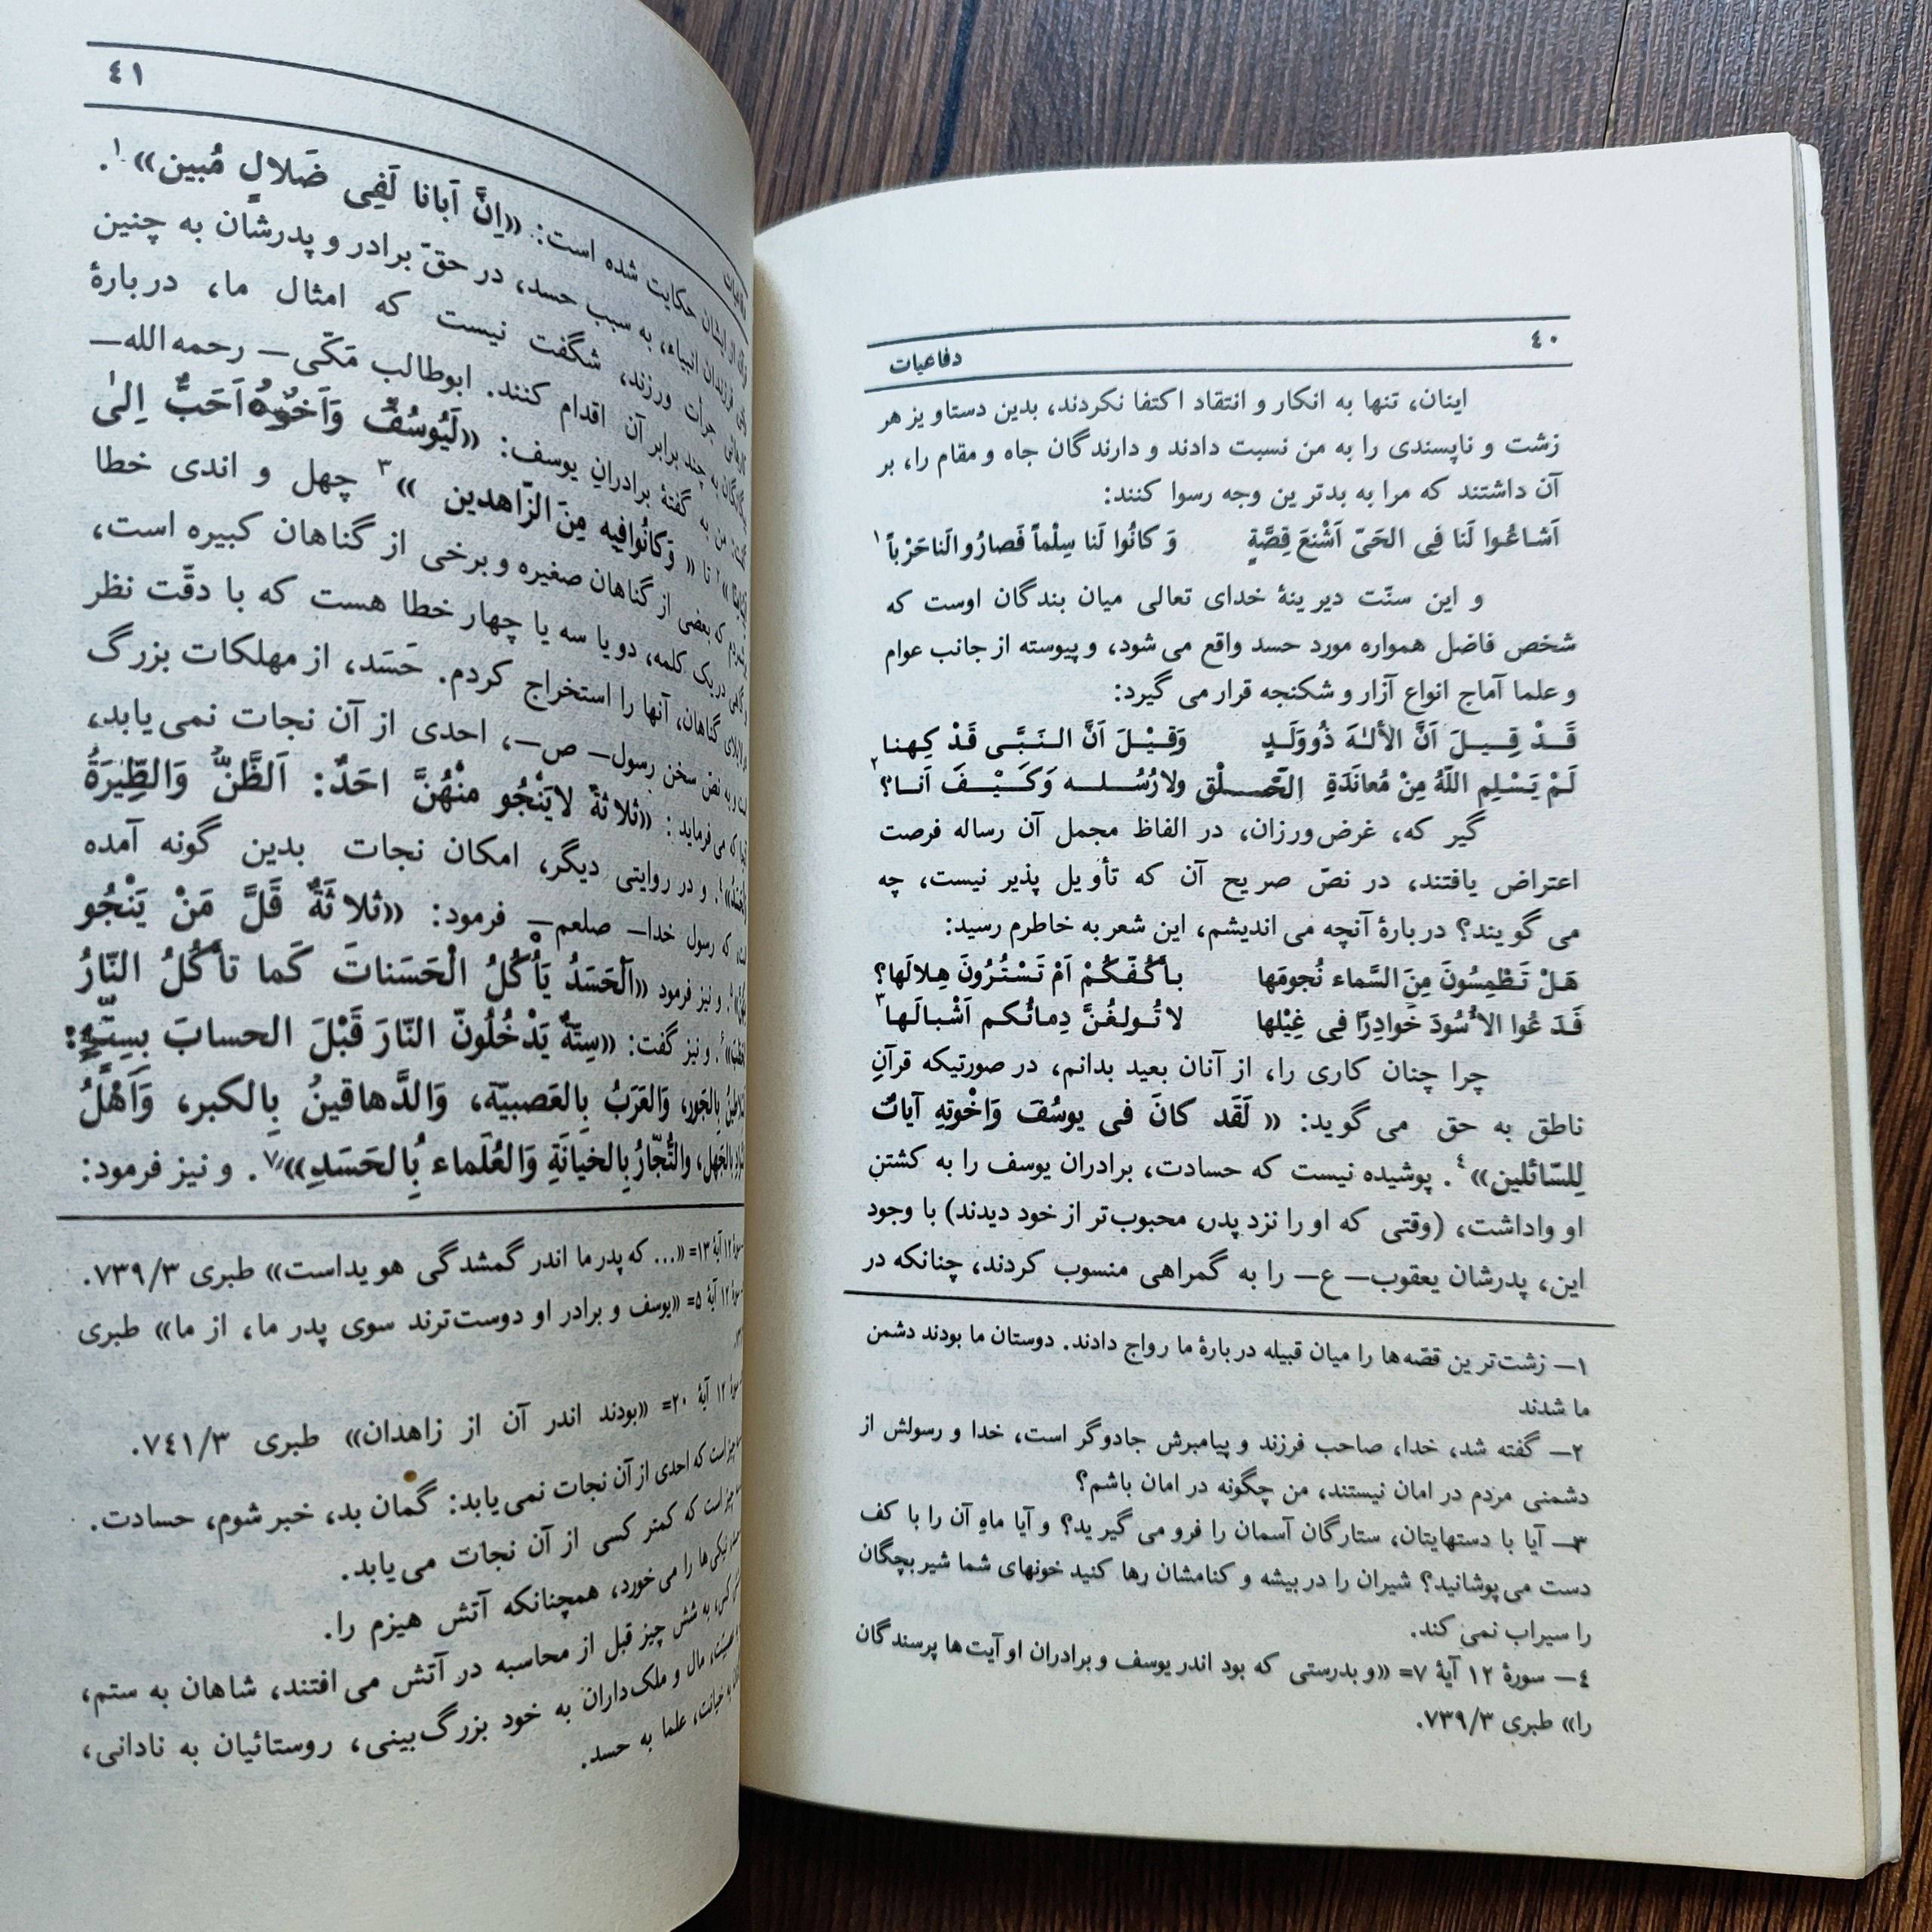 ٤٠
دفاعیات
اینان، تنها به انکار و انتقاد اکتفا نکردند، بدین دستاویز هر
زشت و ناپسندی را به من نسبت دادند و دارندگان جاه و مقام را، بر
آن داشتند که مرا به بدترین وجه رسوا کنند:
اَشاعُوا لَنا فِی الحَیّ اَشْنعَ قِصَّةٍ وَ کانُوا لَنا سِلْماً فَصارُوا لَنا حَرْباً۱
و این سنّت دیرینهٔ خدای تعالی میان بندگان اوست که
شخص فاضل همواره مورد حسد واقع می شود، و پیوسته از جانب عوام
و علما آماج انواع آزار و شکنجه قرار می گیرد:
قَـدْ قِـیـلَ اَنَّ الألـٰهَ ذُووَلَـدٍ وَقِـیْـلَ اَنَّ الـنَـبَّـی قَدْ کِهنا
لَمْ یَسْلِمِ اللّهُ مِنْ مُعانَدَةِ الخَـلْق ولارُسُـلـه وَکَـیْـفَ اَنـا؟۲
گیر که، غرض‌ورزان، در الفاظ مجمل آن رساله فرصت
اعتراض یافتند، در نصّ صریح آن که تأویل پذیر نیست، چه
می گویند؟ دربارهٔ آنچه می اندیشم، این شعر به خاطرم رسید:
هَلْ تَطْمِسُونَ مِنَ السَّماء نُجومَها بـأکُـفَـکُـمْ اَمْ تَسْتُرُونَ هِلالَها؟
فَدَ عُوا الاُسُودَ خَوادِرًا فِی غِیْلها لا تُـولِـغُـنَّ دِمائُکم اَشْبـالَـها۳
چرا چنان کاری را، از آنان بعید بدانم، در صورتیکه قرآنِ
ناطق به حق می گوید: «لَقَد کانَ فی یوسُفَ وَاخْوتِهِ آیاتٌ
لِلسّائلین»٤. پوشیده نیست که حسادت، برادران یوسف را به کشتن
او واداشت، (وقتی که او را نزد پدر، محبوب‌تر از خود دیدند) با وجود
این، پدرشان یعقوب— ع— را به گمراهی منسوب کردند، چنانکه در
۱— زشت‌ترین قصّه‌ها را میان قبیله دربارهٔ ما رواج دادند. دوستان ما بودند دشمن
ما شدند
۲— گفته شد، خدا، صاحب فرزند و پیامبرش جادوگر است، خدا و رسولش از
دشمنی مردم در امان نیستند، من چگونه در امان باشم؟
۳— آیا با دستهایتان، ستارگان آسمان را فرو می گیرید؟ و آیا ماهِ آن را با کف
دست می پوشانید؟ شیران را در بیشه و کنامشان رها کنید خونهای شما شیربچگان
را سیراب نمی کند.
٤— سورهٔ ۱۲ آیهٔ ۷= «و بدرستی که بود اندر یوسف و برادران او آیت‌ها پرسندگان
را» طبری ۷۳۹/۳.
٤١
ایشان حکایت شده است: «اِنَّ اَبانا لَفِی ضَلالٍ مُبین»۱.
فرزندان انبیاء، به سبب حسد، در حقّ برادر و پدرشان به چنین
جرأت ورزند، شگفت نیست که امثال ما، دربارهٔ
به چند برابر آن اقدام کنند. ابوطالب مَکّی— رحمه‌الله—
من به گفتهٔ برادرانِ یوسف: «لَیُوسُفُ وَاَخُوهُ اَحَبُّ اِلیٰ
۲ تا «وَکانُوافیه مِنَ الزّاهدین»۳ چهل و اندی خطا
که بعضی از گناهان صغیره و برخی از گناهان کبیره است،
در یک کلمه، دو یا سه یا چهار خطا هست که با دقّت نظر
گناهان، آنها را استخراج کردم. حَسَد، از مهلکات بزرگ
و به نصّ سخن رسول— ص—، احدی از آن نجات نمی یابد،
که می فرماید: «ثلاثةٌ لایَنْجُو منْهُنَّ احَدٌ: اَلظَّنُّ وَالطِّیَرَةُ
و در روایتی دیگر، امکان نجات بدین گونه آمده
که رسول خدا— صلعم— فرمود: «ثلاثَةٌ قَلَّ مَنْ یَنْجُو
و نیز فرمود «اَلْحَسَدُ یَأْکُلُ الْحَسَناتَ کَما تأکُلُ النّارُ
و نیز گفت: «سِتةٌ یَدْخُلُونّ النّارَ قَبْلَ الحسابَ بسِتّةٍ:
بِالجَور، وَالعَرَبُ بِالعَصبیّة، وَالدَّهاقینُ بِالکبر، وَاَهْلُ
بالجَهل، والتُّجّارُ بِالخیانَةِ وَالعُلَماء بُالحَسَدِ»۷. و نیز فرمود:
سورهٔ ۱۲ آیهٔ ۱۳= «... که پدر ما اندر گمشدگی هویداست» طبری ۷۳۹/۳.
سورهٔ ۱۲ آیهٔ ۵= «یوسف و برادر او دوست‌ترند سوی پدر ما، از ما» طبری
سورهٔ ۱۲ آیهٔ ۲۰= «بودند اندر آن از زاهدان» طبری ۷٤۱/۳.
چیز است که احدی از آن نجات نمی یابد: گمان بد، خبر شوم، حسادت.
چیز است که کمتر کسی از آن نجات می یابد.
نیکی‌ها را می خورد، همچنانکه آتش هیزم را.
کس، به شش چیز قبل از محاسبه در آتش می افتند، شاهان به ستم،
مال و ملک‌داران به خود بزرگ‌بینی، روستائیان به نادانی،
به خیانت، علما به حسد.